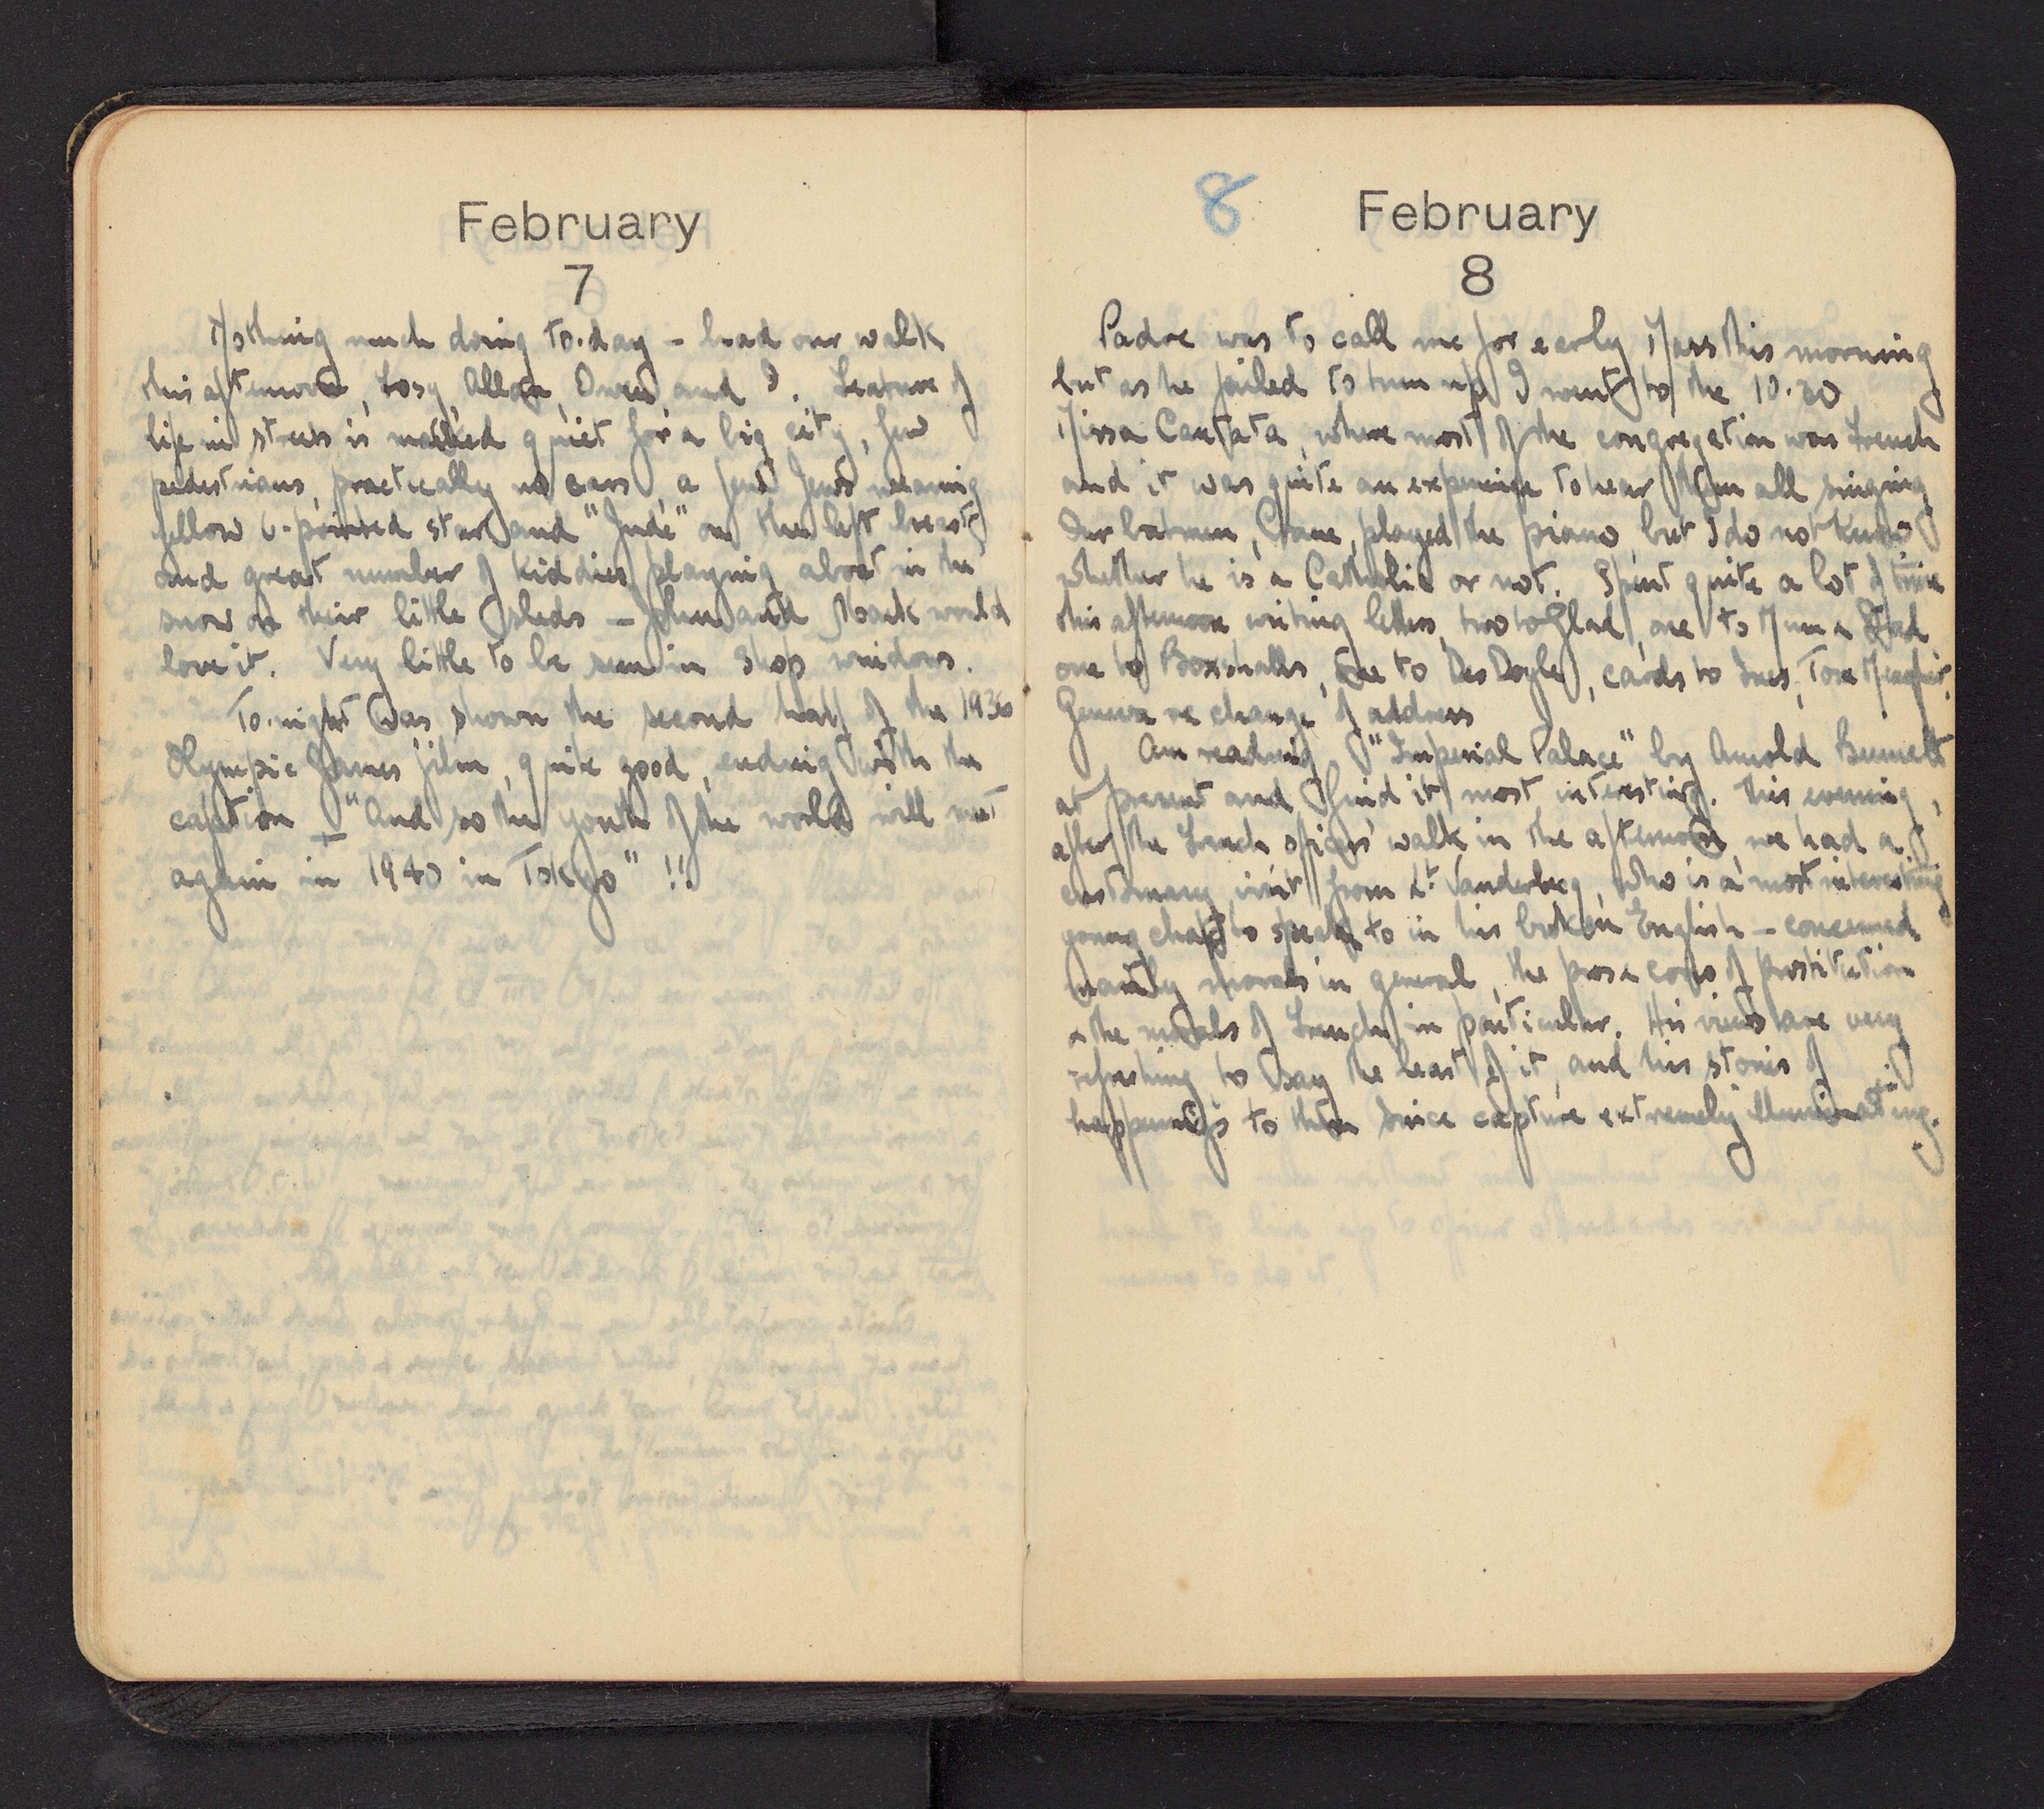 February
7
Nothing much doing to-day – had our walk
this afternoon, Losy, Allan, Owen and I. Feature of
life in streets is marked quiet for a big city, few
pedestrians, practically no cars, a few Jews wearing
yellow 6-pointed star and "Jude" on the left breast
and great number of kiddies playing about in the
snow on their little sleds – John and Mark would
love it. Very little to be seen in shop windows.
To-night was shown the second half of the 1936
Olympic Games film, quite good, ending with the
caption – "And so the youth of the world will meet
again in 1940 in Tokyo" !!
8
February
8
Padre was to call me for early Mass this morning
but as he failed to turn up I went to the 10.30
Missa Cantata, where most of the congregation was French
and it was quite an experience to hear them all singing
Our batman, Crane, played the piano, but I do not know
whether he is a Catholic or not. Spent quite a lot of time
this afternoon writing letters, two to Glad, one to Mum & Dad
one to Boxshalls, one to Des Doyle, cards to Ines, Tom
Geneva re change of address
Am reading "Imperial Palace" by Arnold Bennett
at present and find it most interesting. This evening,
after the French officers' walk in the afternoon we had a
customary visit from Lt. Vanderberg, who is a most interesting
young chap to speak to in his broken English – concerned
mainly morals in general, the pros & cons of prostitution
& the morals of French in particular. His views are very
refreshing to say the least of it, and his stories of
happenings to them since capture extremely illuminating.